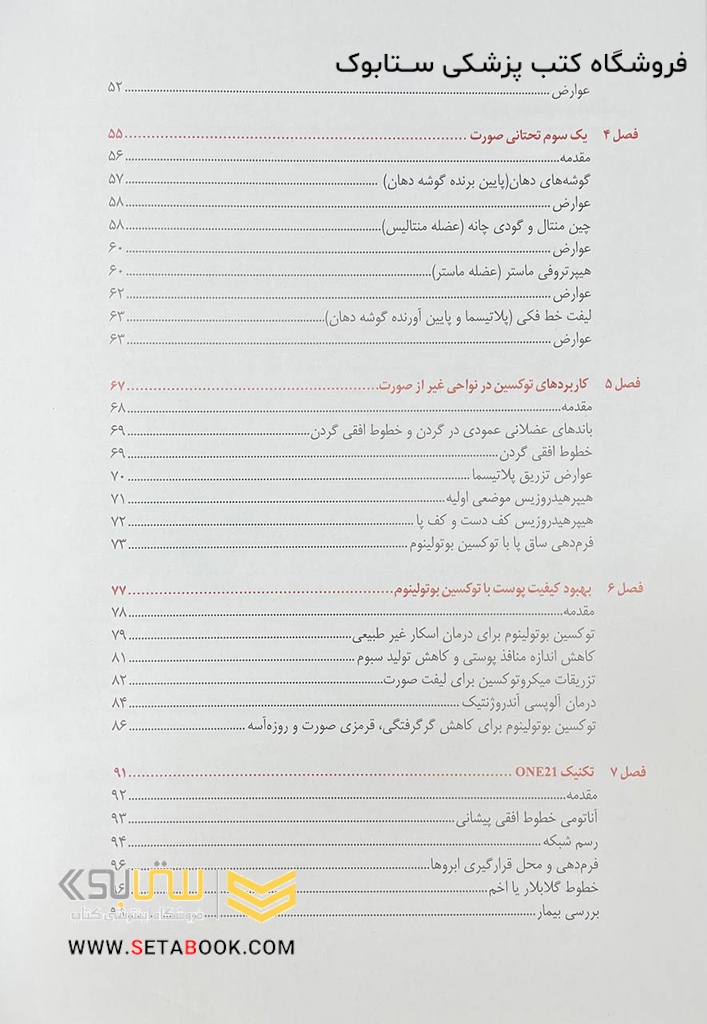 فروشگاه کتب پزشکی ستابوک
عوارض ۵۲
فصل ۴ یک سوم تحتانی صورت ۵۵
مقدمه ۵۶
گوشه‌های دهان(پایین برنده گوشه دهان) ۵۷
عوارض ۵۸
چین منتال و گودی چانه (عضله منتالیس) ۵۸
عوارض ۶۰
هیپرتروفی ماستر (عضله ماستر) ۶۰
عوارض ۶۲
لیفت خط فکی (پلاتیسما و پایین آورنده گوشه دهان) ۶۳
عوارض ۶۳
فصل ۵ کاربردهای توکسین در نواحی غیر از صورت ۶۷
مقدمه ۶۸
باندهای عضلانی عمودی در گردن و خطوط افقی گردن ۶۹
خطوط افقی گردن ۶۹
عوارض تزریق پلاتیسما ۷۰
هیپرهیدروزیس موضعی اولیه ۷۱
هیپرهیدروزیس کف دست و کف پا ۷۲
فرم‌دهی ساق پا با توکسین بوتولینوم ۷۳
فصل ۶ بهبود کیفیت پوست با توکسین بوتولینوم ۷۷
مقدمه ۷۸
توکسین بوتولینوم برای درمان اسکار غیر طبیعی ۷۹
کاهش اندازه منافذ پوستی و کاهش تولید سبوم ۸۱
تزریقات میکروتوکسین برای لیفت صورت ۸۲
درمان آلوپسی آندروژنتیک ۸۴
توکسین بوتولینوم برای کاهش گرگرفتگی، قرمزی صورت و روزه‌آسه ۸۶
فصل ۷ تکنیک ONE21 ۹۱
مقدمه ۹۲
آناتومی خطوط افقی پیشانی ۹۳
رسم شبکه ۹۴
فرم‌دهی و محل قرارگیری ابروها ۹۶
خطوط گلابلار یا اخم
بررسی بیمار
ستابوک
فروشگاه اینترنتی کتاب
WWW.SETABOOK.COM